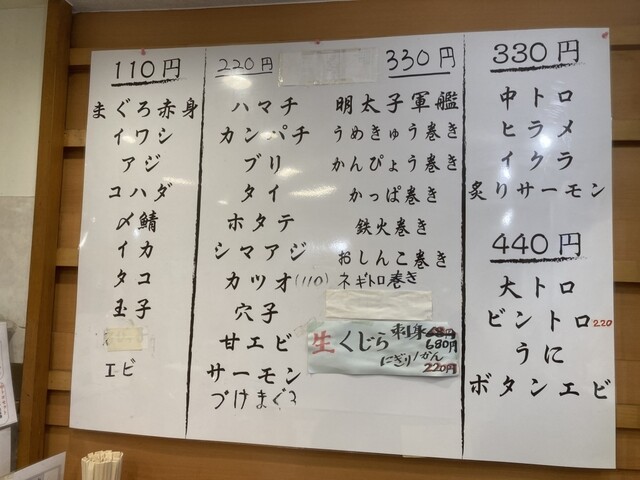 110円
まぐろ赤身
イワシ
アジ
コハダ
〆鯖
イカ
タコ
玉子
エビ
220円
ハマチ
カンパチ
ブリ
タイ
ホタテ
シマアジ
カツオ(110)
穴子
甘エビ
サーモン
づけまぐろ
330円
明太子軍艦
うめきゅう巻き
かんぴょう巻き
かっぱ巻き
鉄火巻き
おしんこ巻き
ネギトロ巻き
生くじら 刺身
680円
にぎり1かん
220円
330円
中トロ
ヒラメ
イクラ
炙りサーモン
440円
大トロ
ビントロ220
うに
ボタンエビ